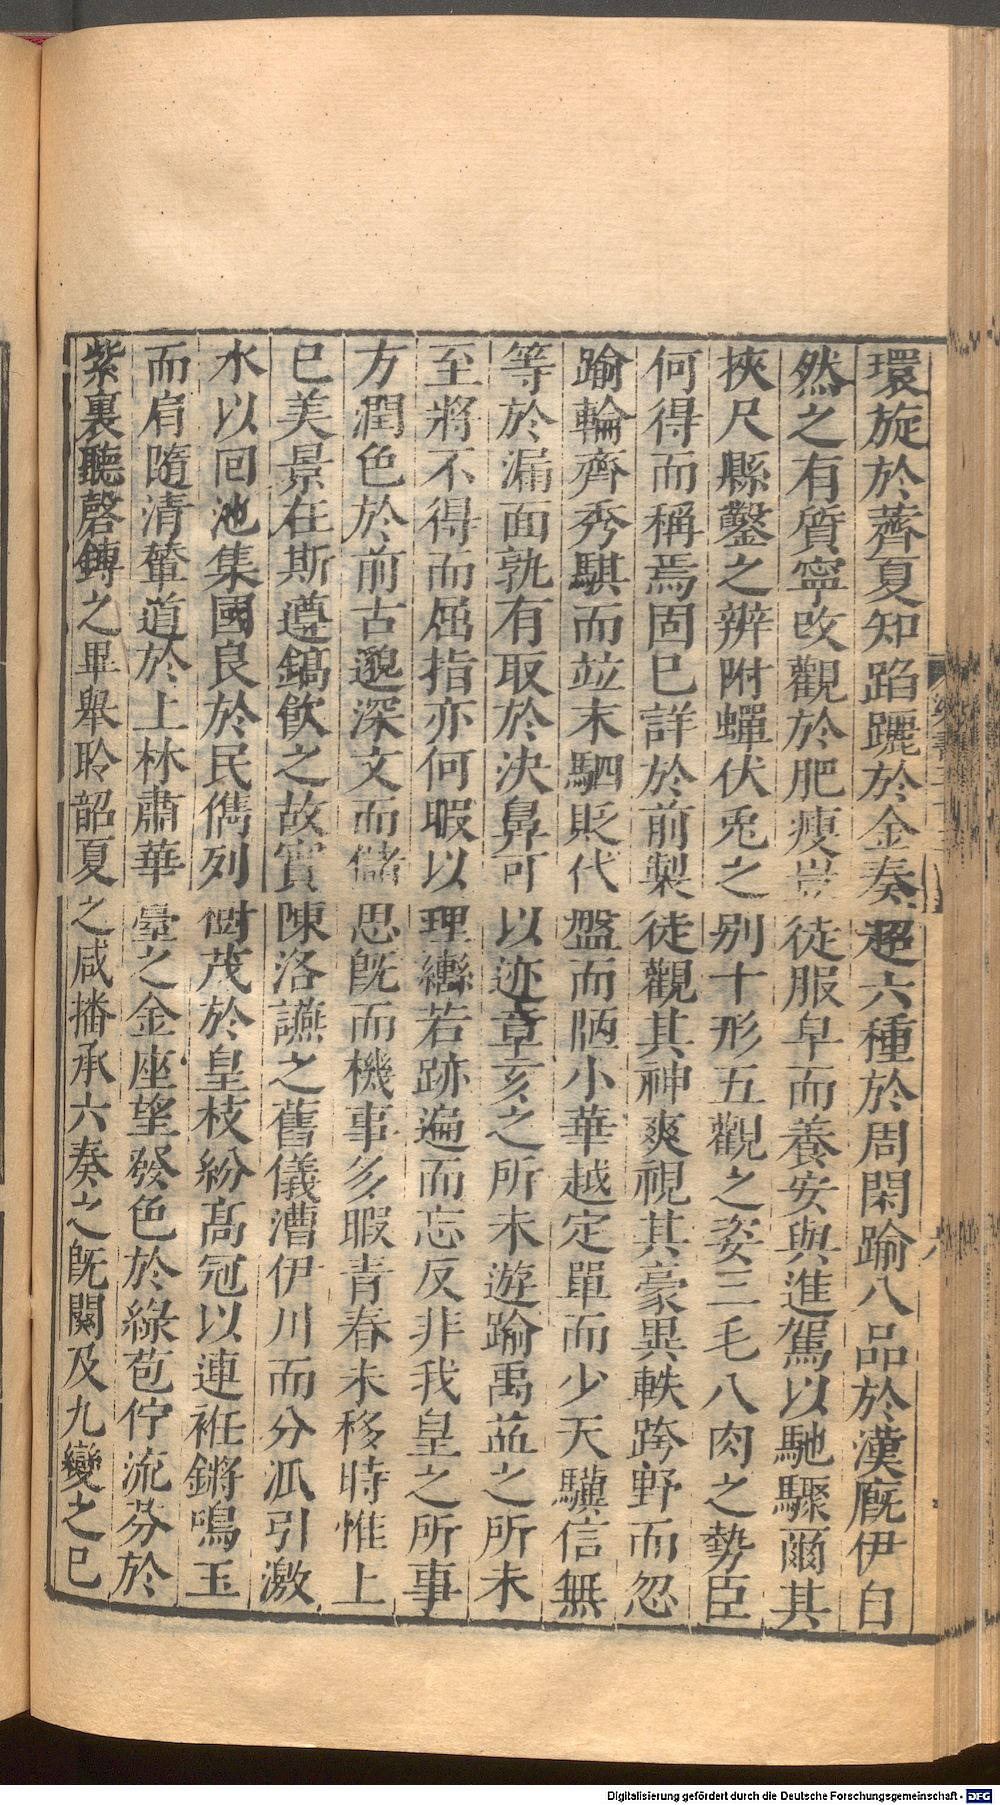 環旋於薺夏知蹈躧於金奏超六種於周閑踰八品於漢廐伊自
然之有質寧改觀於肥瘦豈徒服皁而養安與進駕以馳驟爾其
挾尺縣鑿之辨附蟬伏兎之别十形五觀之姿三毛八肉之勢臣
何得而稱焉固已詳於前製徒觀其神爽視其豪異軼跨野而忽
踰輪齊秀騏而竝末駟貶代盤而陋小華越定單而少天驥信無
等於漏面孰有取於決鼻可以迹章亥之所未遊踰禹益之所未
至將不得而屈指亦何暇以理轡若跡遍而忘反非我皇之所事
方潤色於前古邈深文而儲思旣而機事多暇青春未移時惟上
巳美景在斯遵鎬飮之故實陳洛讌之舊儀漕伊川而分派引激
水以回池集國良於民儁列樹茂於皇枝紛高冠以連袵鏘鳴玉
而肩隨清輦道於上林肅華臺之金座望發色於綠苞佇流芬於
紫裏聽磬鏄之畢舉聆韶夏之咸播承六奏之旣闋及九變之已
Digitalisierung gefördert durch die Deutsche Forschungsgemeinschaft - DFG